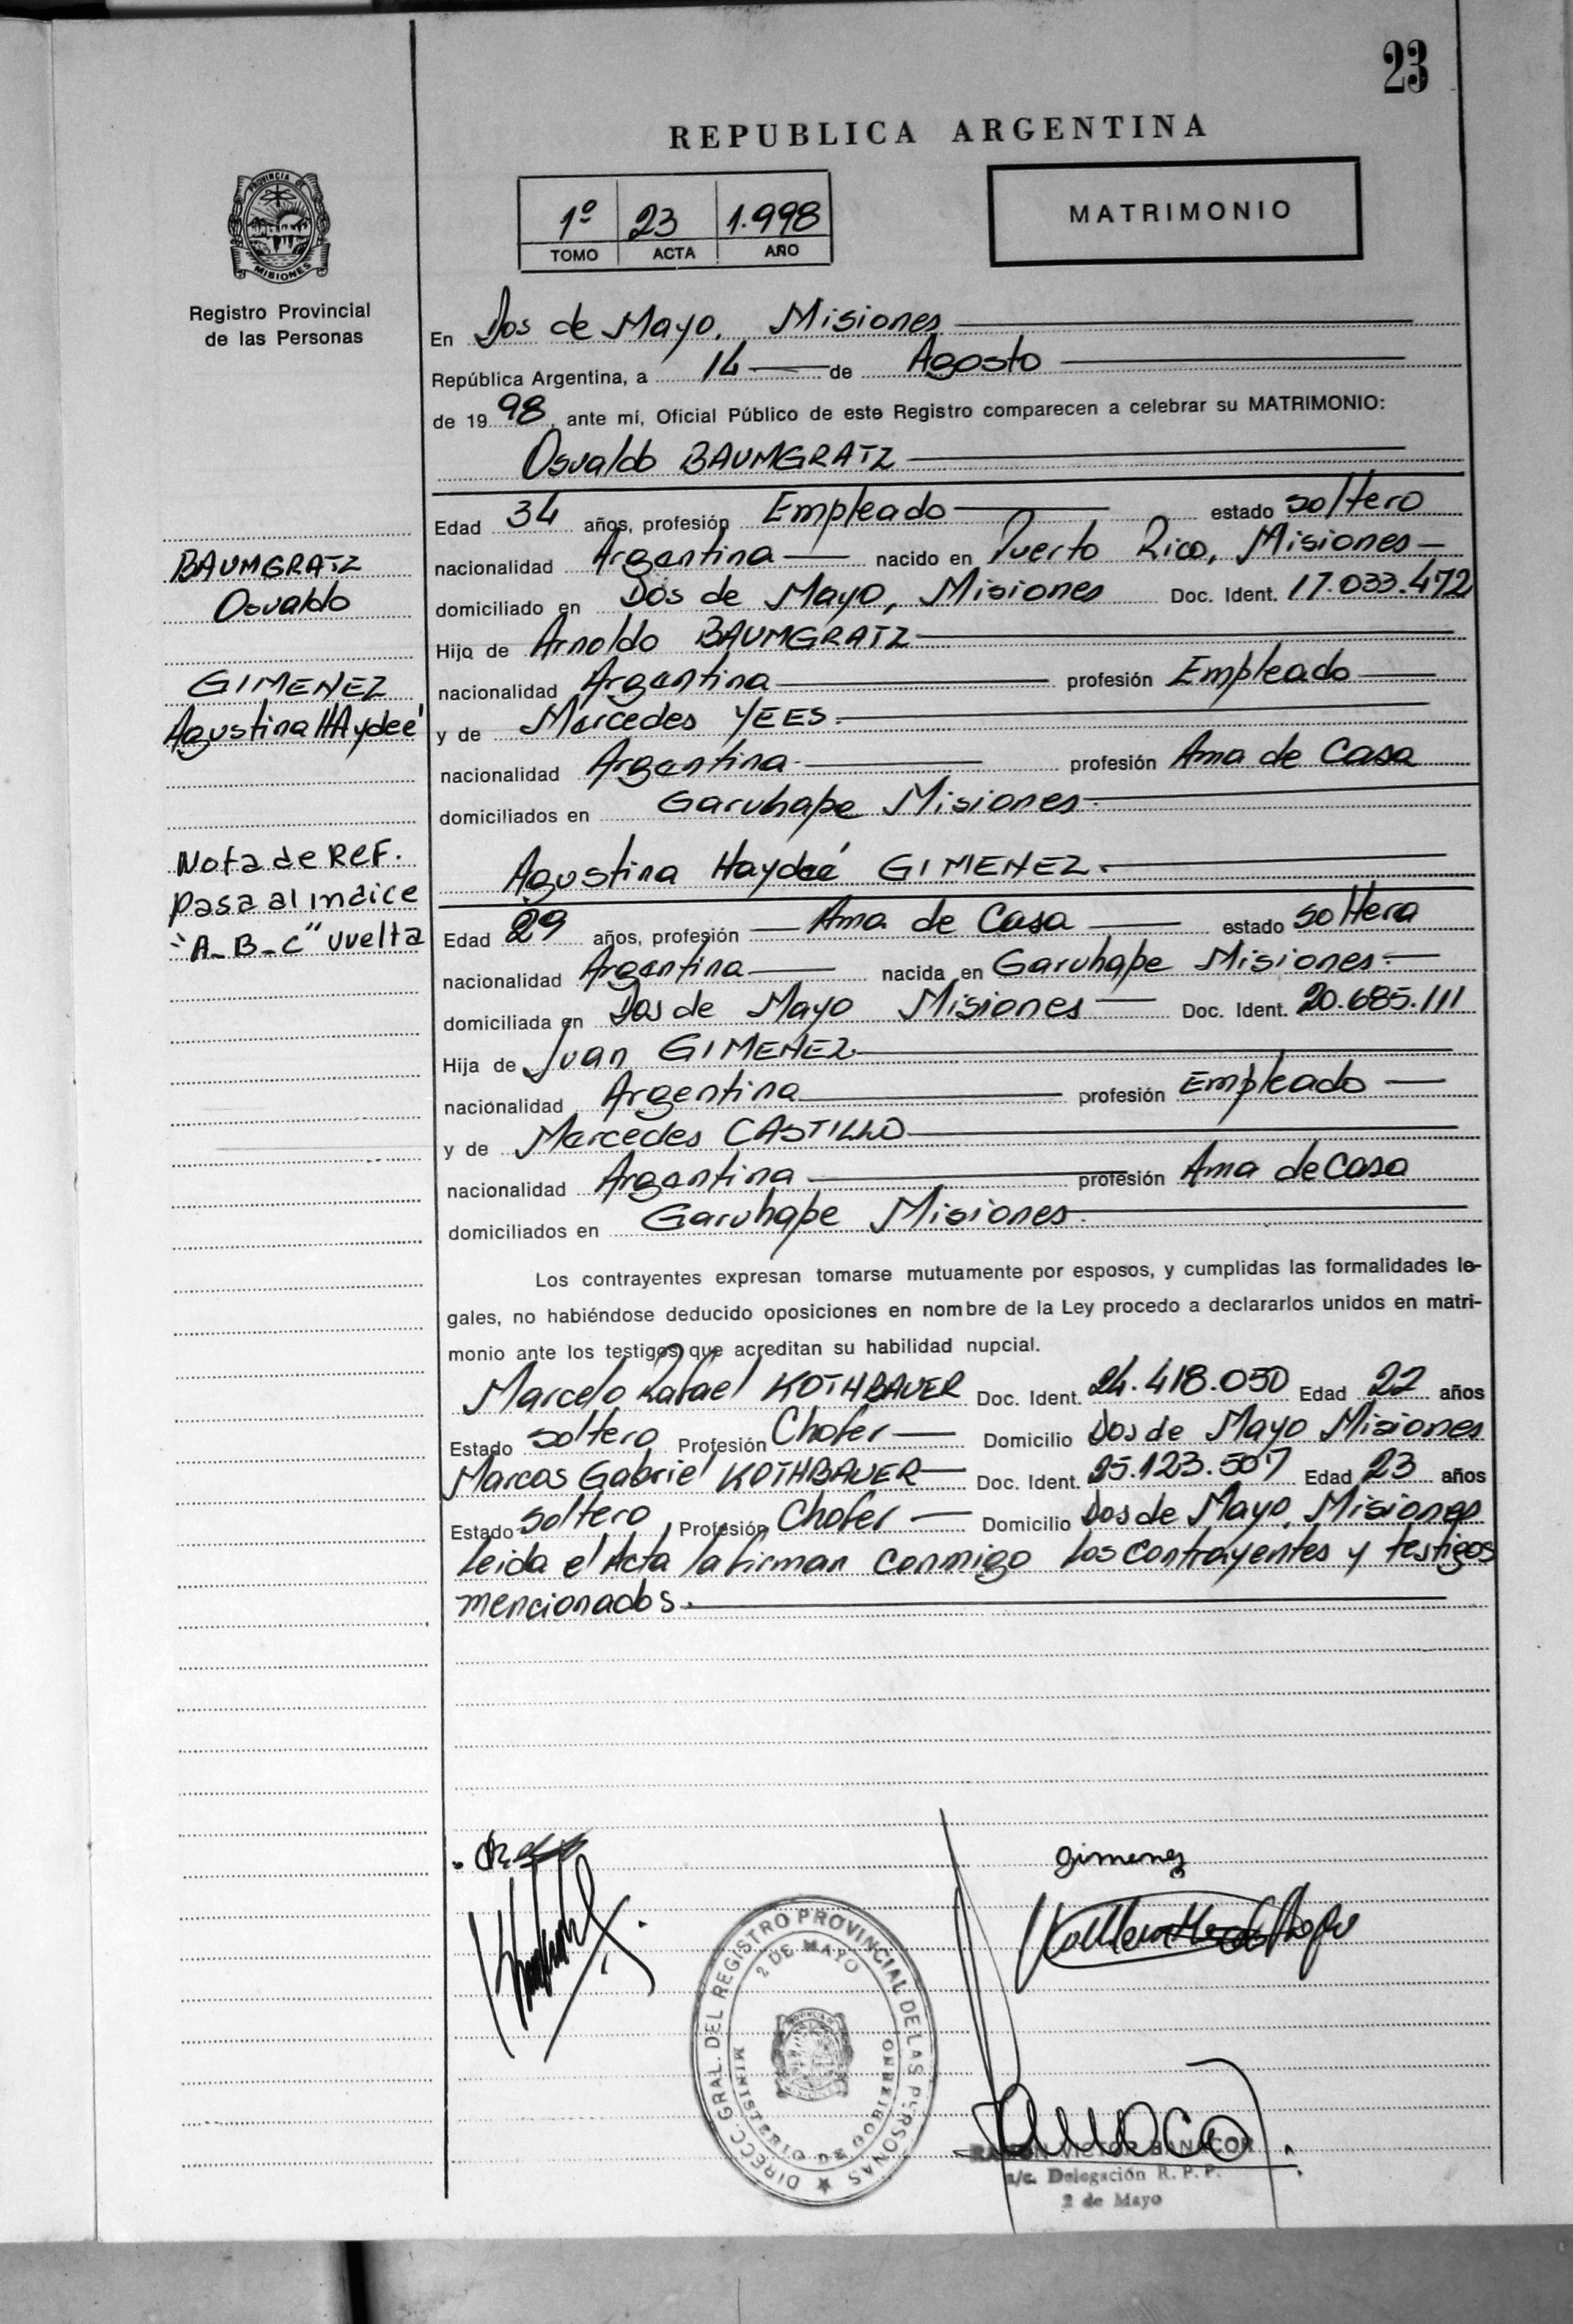 23
REPUBLICA ARGENTINA
1º 23 1.998
TOMO ACTA AÑO
MATRIMONIO
PROVINCIA DE
MISIONES
Registro Provincial
de las Personas
En Dos de Mayo, Misiones
República Argentina, a 14 de Agosto
de 1998, ante mí, Oficial Público de este Registro comparecen a celebrar su MATRIMONIO:
Osvaldo BAUMGRATZ
Edad 34 años, profesión Empleado estado soltero
nacionalidad Argentina nacido en Puerto Rico, Misiones
domiciliado en Dos de Mayo, Misiones Doc. Ident. 17.033.472
Hijo de Arnoldo BAUMGRATZ
nacionalidad Argentina profesión Empleado
y de Mercedes YEES
nacionalidad Argentina profesión Ama de Casa
domiciliados en Garuhape Misiones
Agustina Haydeé GIMENEZ
Edad 29 años, profesión Ama de Casa estado soltera
nacionalidad Argentina nacida en Garuhape Misiones
domiciliada en Dos de Mayo Misiones Doc. Ident. 20.685.111
Hija de Juan GIMENEZ
nacionalidad Argentina profesión Empleado
y de Mercedes CASTILLO
nacionalidad Argentina profesión Ama de Casa
domiciliados en Garuhape Misiones
Los contrayentes expresan tomarse mutuamente por esposos, y cumplidas las formalidades le-
gales, no habiéndose deducido oposiciones en nombre de la Ley procedo a declararlos unidos en matri-
monio ante los testigos que acreditan su habilidad nupcial.
Marcelo Rafael KOTHBAUER Doc. Ident. 24.418.050 Edad 22 años
Estado soltero Profesión Chofer Domicilio Dos de Mayo Misiones
Marcos Gabriel KOTHBAUER Doc. Ident. 25.123.507 Edad 23 años
Estado soltero Profesión Chofer Domicilio Dos de Mayo, Misiones
Leida el Acta la firman conmigo los contrayentes y testigos
mencionados.
BAUMGRATZ
Osvaldo
GIMENEZ
Agustina HAydeé
Nota de REF.
pasa al indice
"A-B-C" vuelta
Gimenez
DIRECC. GRAL. DEL REGISTRO PROVINCIAL DE LAS PERSONAS
2 DE MAYO
MINISTERIO DE GOBIERNO
RAMON VICTOR BANACOR
a/c. Delegación R. P. P.
2 de Mayo